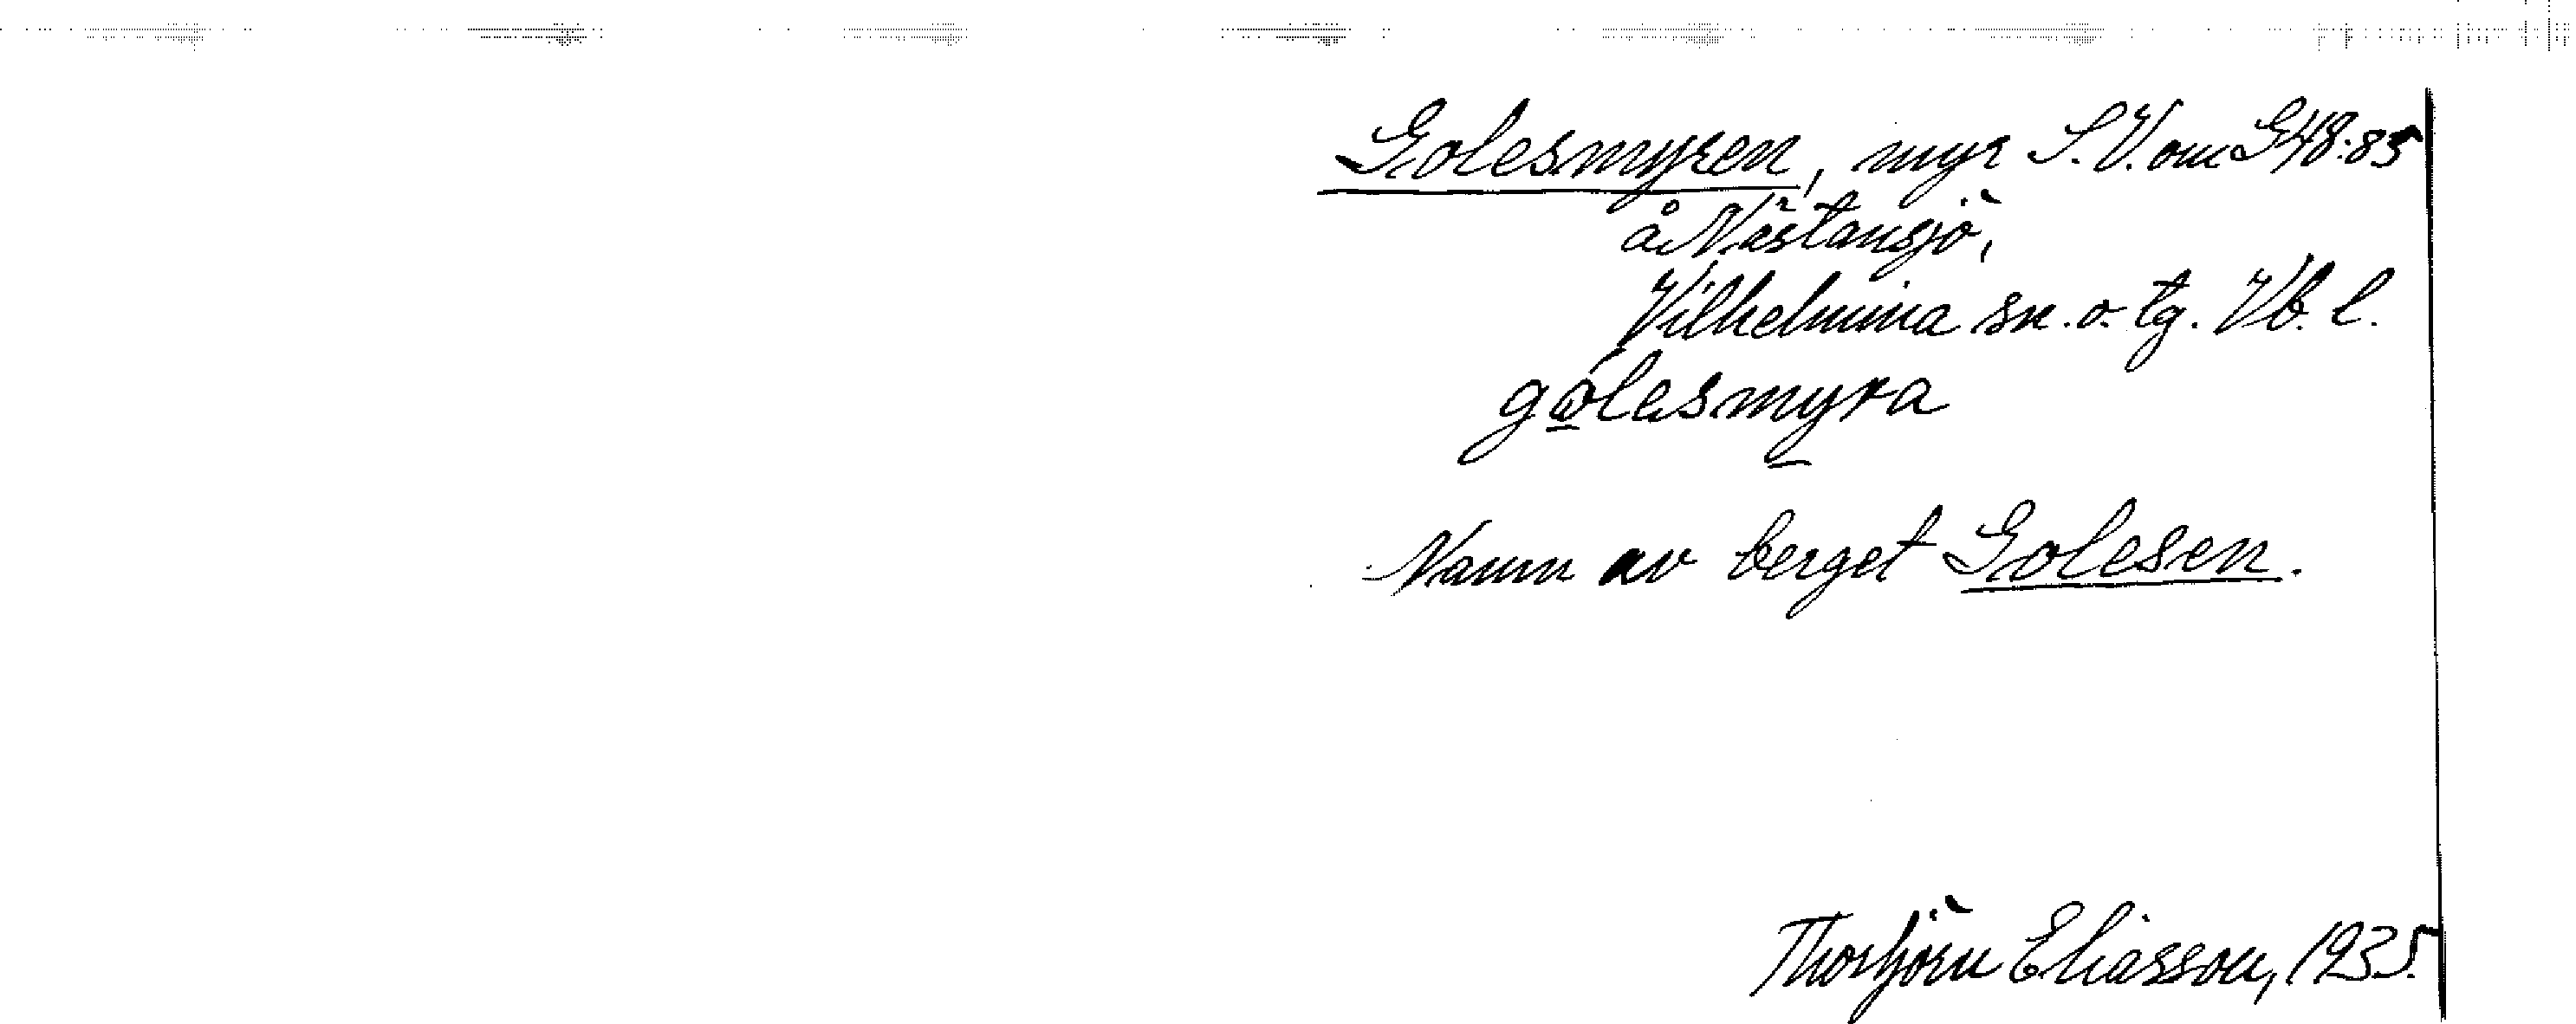 Golesmyren, myr S.V. om G48:85
å Nästansjö,
Vilhelmina sn. o. tg. Vb. l.
gǫ́lesmyra
Namn av berget Golesen.
Thorbjörn Eliasson, 1935.